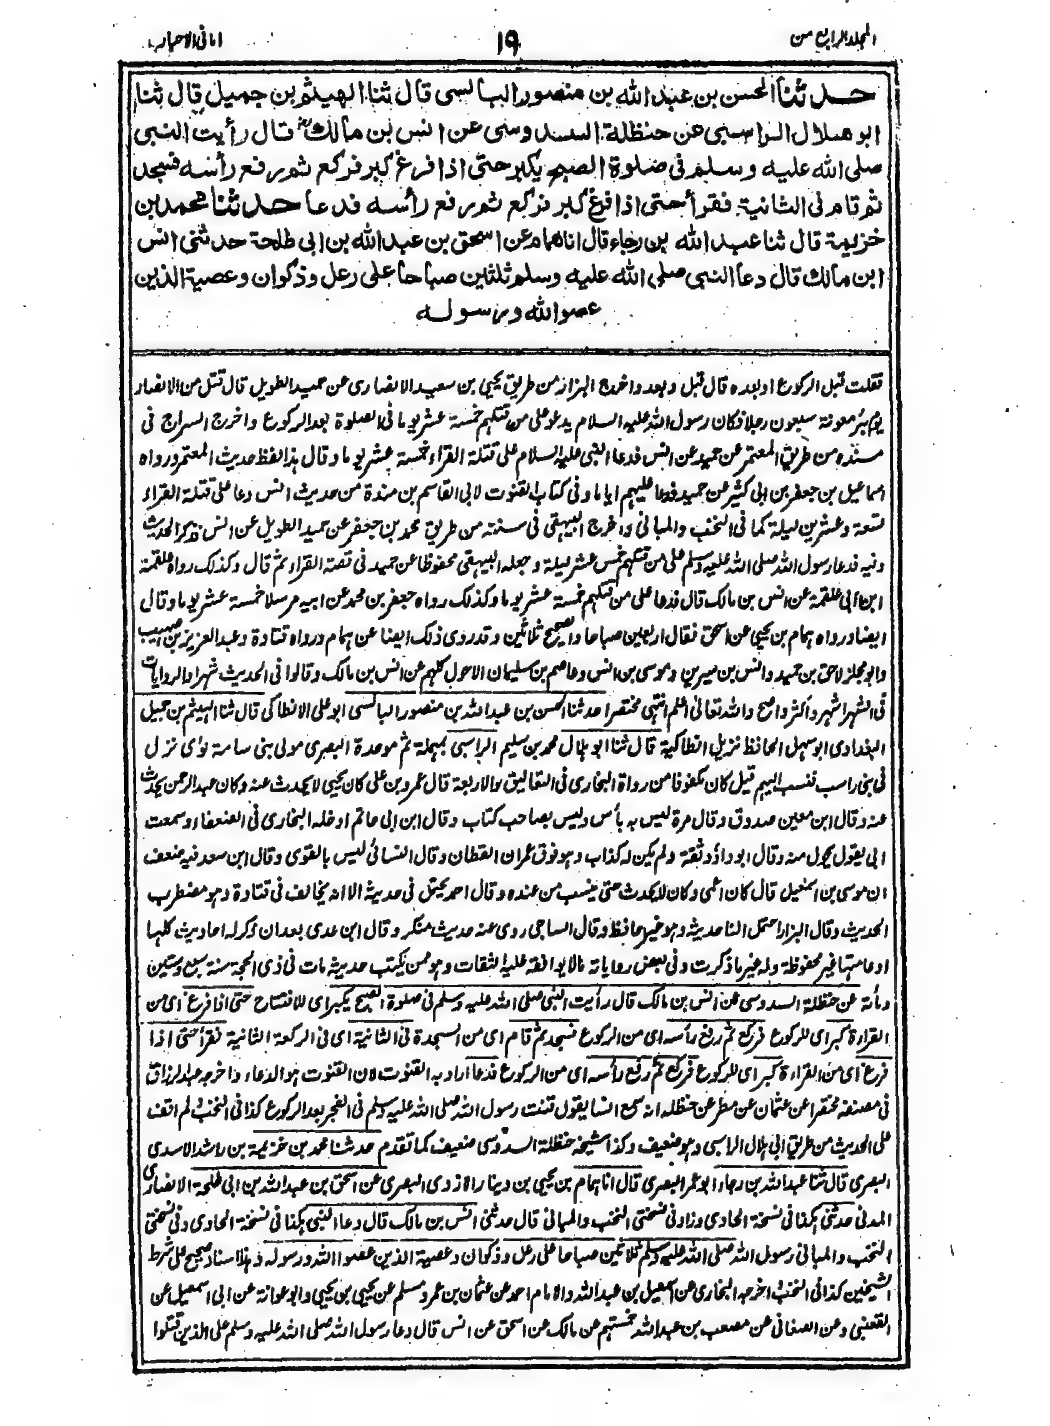 المجلد الرابع من
١٩
امانى الاحبار
حدثنا الحسن بن عبد الله بن منصور البالسى قال ثنا الهيثم بن جميل قال ثنا
ابو هلال الراسبى عن حنظلة السدوسى عن انس بن مالك قال رأيت النبى
صلى الله عليه وسلم فى صلوة الصبح يكبر حتى اذا فرغ كبر فركع ثم رفع رأسه فسجد
ثم قام فى الثانية فقرأ حتى اذا فرغ كبر فركع ثم رفع رأسه فدعا حدثنا محمد بن
خزيمة قال ثنا عبد الله بن رجاء قال انا همام عن اسحق بن عبد الله بن ابى طلحة حدثنى انس
ابن مالك قال دعا النبى صلى الله عليه وسلم ثلثين صباحا على رعل وذكوان وعصية الذين
عصوا الله ورسوله
فقلت قبل الركوع او بعده قال قبل وبعد واخرج البزار من طريق يحيى بن سعيد الانصارى عن حميد الطويل قال قتل من الانصار
يوم بئر معونة سبعون رجلا فكان رسول الله عليه السلام يدعو على من قتلهم خمسة عشر يوما فى الصلوة بعد الركوع واخرج السراج فى
مسنده من طريق المعتمر عن حميد عن انس فدعا النبى عليه السلام على قتلة القراء خمسة عشر يوما وقال هذا لفظ حديث المعتمر ورواه
اسماعيل بن جعفر بن ابى كثير عن حميد فدعا عليهم اياما وفى كتاب القنوت لابى القاسم بن مندة من حديث انس دعا على قتلة القراء
تسعة وعشرين ليلة كما فى النخب والمبانى واخرج البيهقى فى سننه من طريق محمد بن جعفر عن حميد الطويل عن انس فذكر الحديث
وفيه فدعا رسول الله صلى الله عليه وسلم على من قتلهم خمس عشر ليلة وجعله البيهقى محفوظا عن حميد فى قصة القراء ثم قال وكذلك رواه علقمة
ابن ابى علقمة عن انس بن مالك قال فدعا على من قتلهم خمسة عشر يوما وكذلك رواه جعفر بن محمد عن ابيه مرسلا خمسة عشر يوما وقال
ايضا ورواه همام بن يحيى عن اسحق فقال اربعين صباحا والصحيح ثلاثين وقد روى ذلك ايضا عن همام ورواه قتادة وعبد العزيز بن صهيب
وابو مجلز لاحق بن حميد وانس بن سيرين وموسى بن انس وعاصم بن سليمان الاحول كلهم عن انس بن مالك وقالوا فى الحديث شهرا والروايات
فى الشهر اشهر واكثر واصح والله تعالى اعلم انتهى مختصرا حدثنا الحسن بن عبد الله بن منصور البالسى ابو على الانطاكى قال ثنا الهيثم بن جميل
البغدادى ابو سهل الحافظ نزيل انطاكية قال ثنا ابو هلال محمد بن سليم الراسبى بمهملة ثم موحدة البصرى مولى بنى سامة لؤى نزل
فى بنى راسب فنسب اليهم قيل كان مكفوفا من رواة البخارى فى التعاليق والاربعة قال عمرو بن على كان يحيى لا يحدث عنه وكان عبد الرحمن يحدث
عنه وقال ابن معين صدوق وقال مرة ليس به بأس وليس بصاحب كتاب وقال ابن ابى حاتم ادخله البخارى فى الضعفاء وسمعت
ابى يقول يحول منه وقال ابو داؤد ثقة ولم يكن له كتاب وهو فوق عمران القطان وقال النسائى ليس بالقوى وقال ابن سعد فيه ضعف
ان موسى بن اسمعيل قال كان اعمى وكان لا يحدث حتى ينسب من عنده وقال احمد يحتمل فى حديثه الا انه يخالف فى قتادة وهو مضطرب
الحديث وقال البزار احتمل الناس حديثه وهو غير حافظ وقال الساجى روى عنه حديث منكر وقال ابن عدى بعد ان ذكر له احاديث كلها
او عامتها غير محفوظة وله غير ما ذكرت وفى بعض رواياته ما لا يوافقه عليه الثقات وهو ممن يكتب حديثه مات فى ذى الحجة سنة سبع وستين
ومأة عن حنظلة السدوسى عن انس بن مالك قال رأيت النبى صلى الله عليه وسلم فى صلوة الصبح يكبر اى للافتتاح حتى اذا فرغ اى من
القراءة كبر اى للركوع فركع ثم رفع رأسه اى من الركوع فسجد ثم قام اى من السجدة فى الثانية اى فى الركعة الثانية فقرأ حتى اذا
فرغ اى من القراءة كبر اى للركوع فركع ثم رفع رأسه اى من الركوع فدعا اراد به القنوت لان القنوت هو الدعاء واخرجه عبد الرزاق
فى مصنفه مختصرا عن عثمان عن مطر عن حنظلة انه سمع انسا يقول قنت رسول الله صلى الله عليه وسلم فى الفجر بعد الركوع كذا فى النخب لم اقف
على الحديث من طريق ابى هلال الراسبى وهو ضعيف وكذا شيخه حنظلة السدوسى ضعيف كما تقدم حدثنا محمد بن خزيمة بن راشد الاسدى
البصرى قال ثنا عبد الله بن رجاء ابو عمر البصرى قال انا همام بن يحيى بن دينار الازدى البصرى عن اسحق بن عبد الله بن ابى طلحة الانصارى
المدنى حدثنى هكذا فى نسخة الحاوى وزاد فى نسختى النخب والمبانى قال حدثنى انس بن مالك قال دعا النبى هكذا فى نسخة الحاوى وفى نسختى
النخب والمبانى رسول الله صلى الله عليه وسلم ثلاثين صباحا على رعل وذكوان وعصية الذين عصوا الله ورسوله وهذا اسناد صحيح على شرط
الشيخين كذا فى النخب اخرجه البخارى عن اسمعيل بن عبد الله والامام احمد عن عثمان بن عمر ومسلم عن يحيى بن يحيى وابو عوانة عن ابى اسمعيل عن
القعنبى وعن الصغانى عن مصعب بن عبد الله خمستهم عن مالك عن اسحق عن انس قال دعا رسول الله صلى الله عليه وسلم على الذين قتلوا